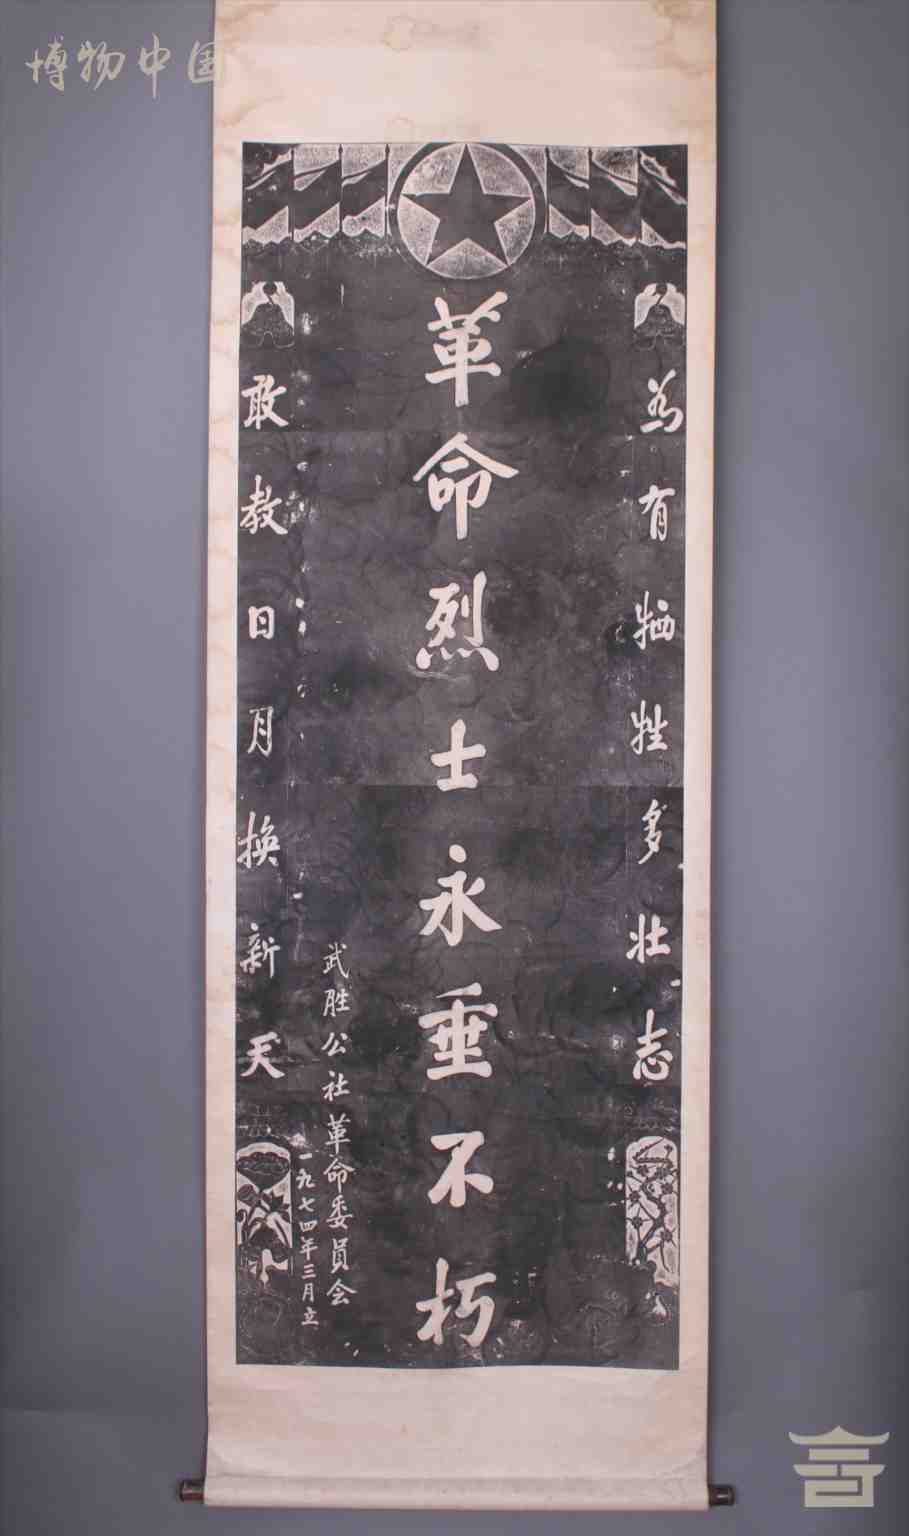 博物中国
为有牺牲多壮志
革命烈士永垂不朽
敢教日月换新天
武胜公社革命委員会
一九七四年三月立